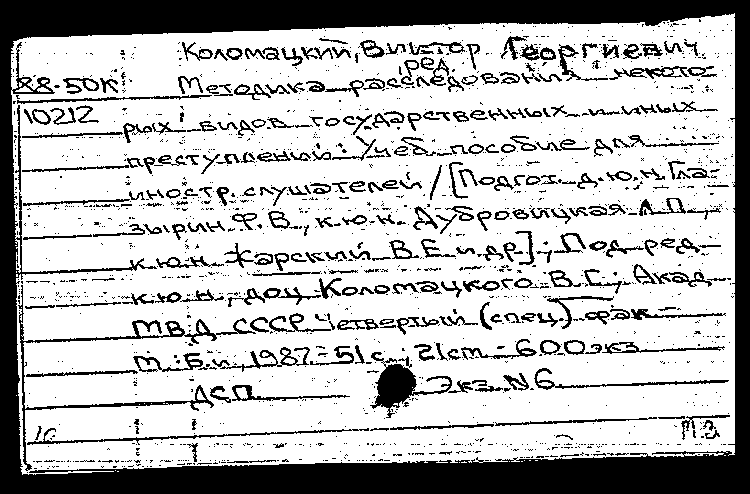 Коломацкий, Виктор Георгиевич
ред.
88-50К Методика расследования некото-
10212
рых видов государственных и иных
преступлений: Учеб. пособие для
иностр. слушателей / [Подгот. д.ю.н. Гла-
зырин Ф.В., к.ю.н. Дубровицкая Л.П.,
к.ю.н. Жарский В.Е. и др]; Под ред.
к.ю.н., доц Коломацкого В.Г.; Акад
МВД СССР Четвертый (спец.) фак-
М.: Б.и, 1987.-51с.; 21cm - 600экз
ДСП. Экз. N6.
М.Э.